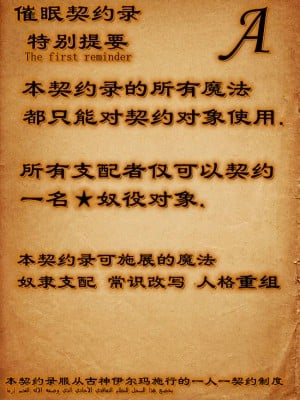 催眠契约录
A
特别提要
The first reminder
本契约录的所有魔法
都只能对契约对象使用.
所有支配者仅可以契约
一名★奴役对象.
本契约录可施展的魔法
奴隶支配 常识改写 人格重组
本契约录服从古神伊尔玛施行的一人一契约制度